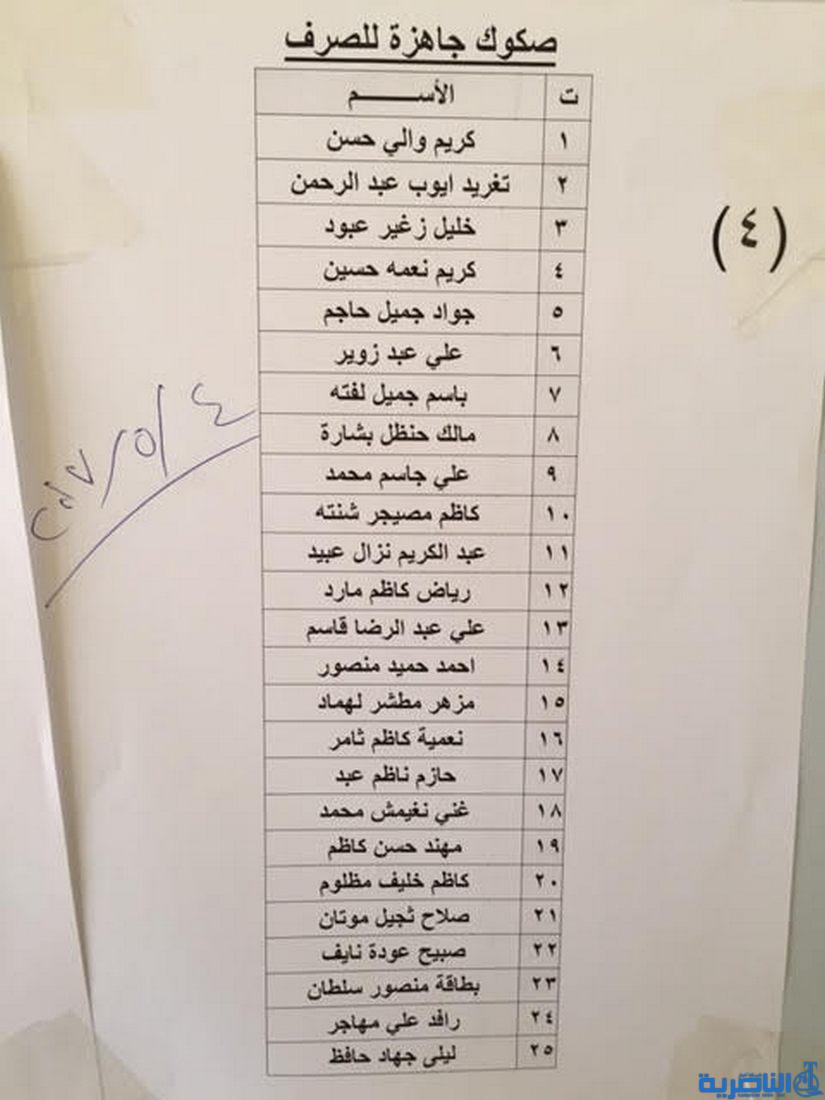 صكوك جاهزة للصرف
ت الأســـــم
١ كريم والي حسن
٢ تغريد ايوب عبد الرحمن
٣ خليل زغير عبود
٤ كريم نعمه حسين
٥ جواد جميل حاجم
٦ علي عبد زوير
٧ باسم جميل لفته
٨ مالك حنظل بشارة
٩ علي جاسم محمد
١٠ كاظم مصيجر شنته
١١ عبد الكريم نزال عبيد
١٢ رياض كاظم مارد
١٣ علي عبد الرضا قاسم
١٤ احمد حميد منصور
١٥ مزهر مطشر لهماد
١٦ نعمية كاظم ثامر
١٧ حازم ناظم عبد
١٨ غني نغيمش محمد
١٩ مهند حسن كاظم
٢٠ كاظم خليف مظلوم
٢١ صلاح ثجيل موتان
٢٢ صبيح عودة نايف
٢٣ بطاقة منصور سلطان
٢٤ رافد علي مهاجر
٢٥ ليلى جهاد حافظ
(٤)
٢٠١٧/٥/٤
الناصرية